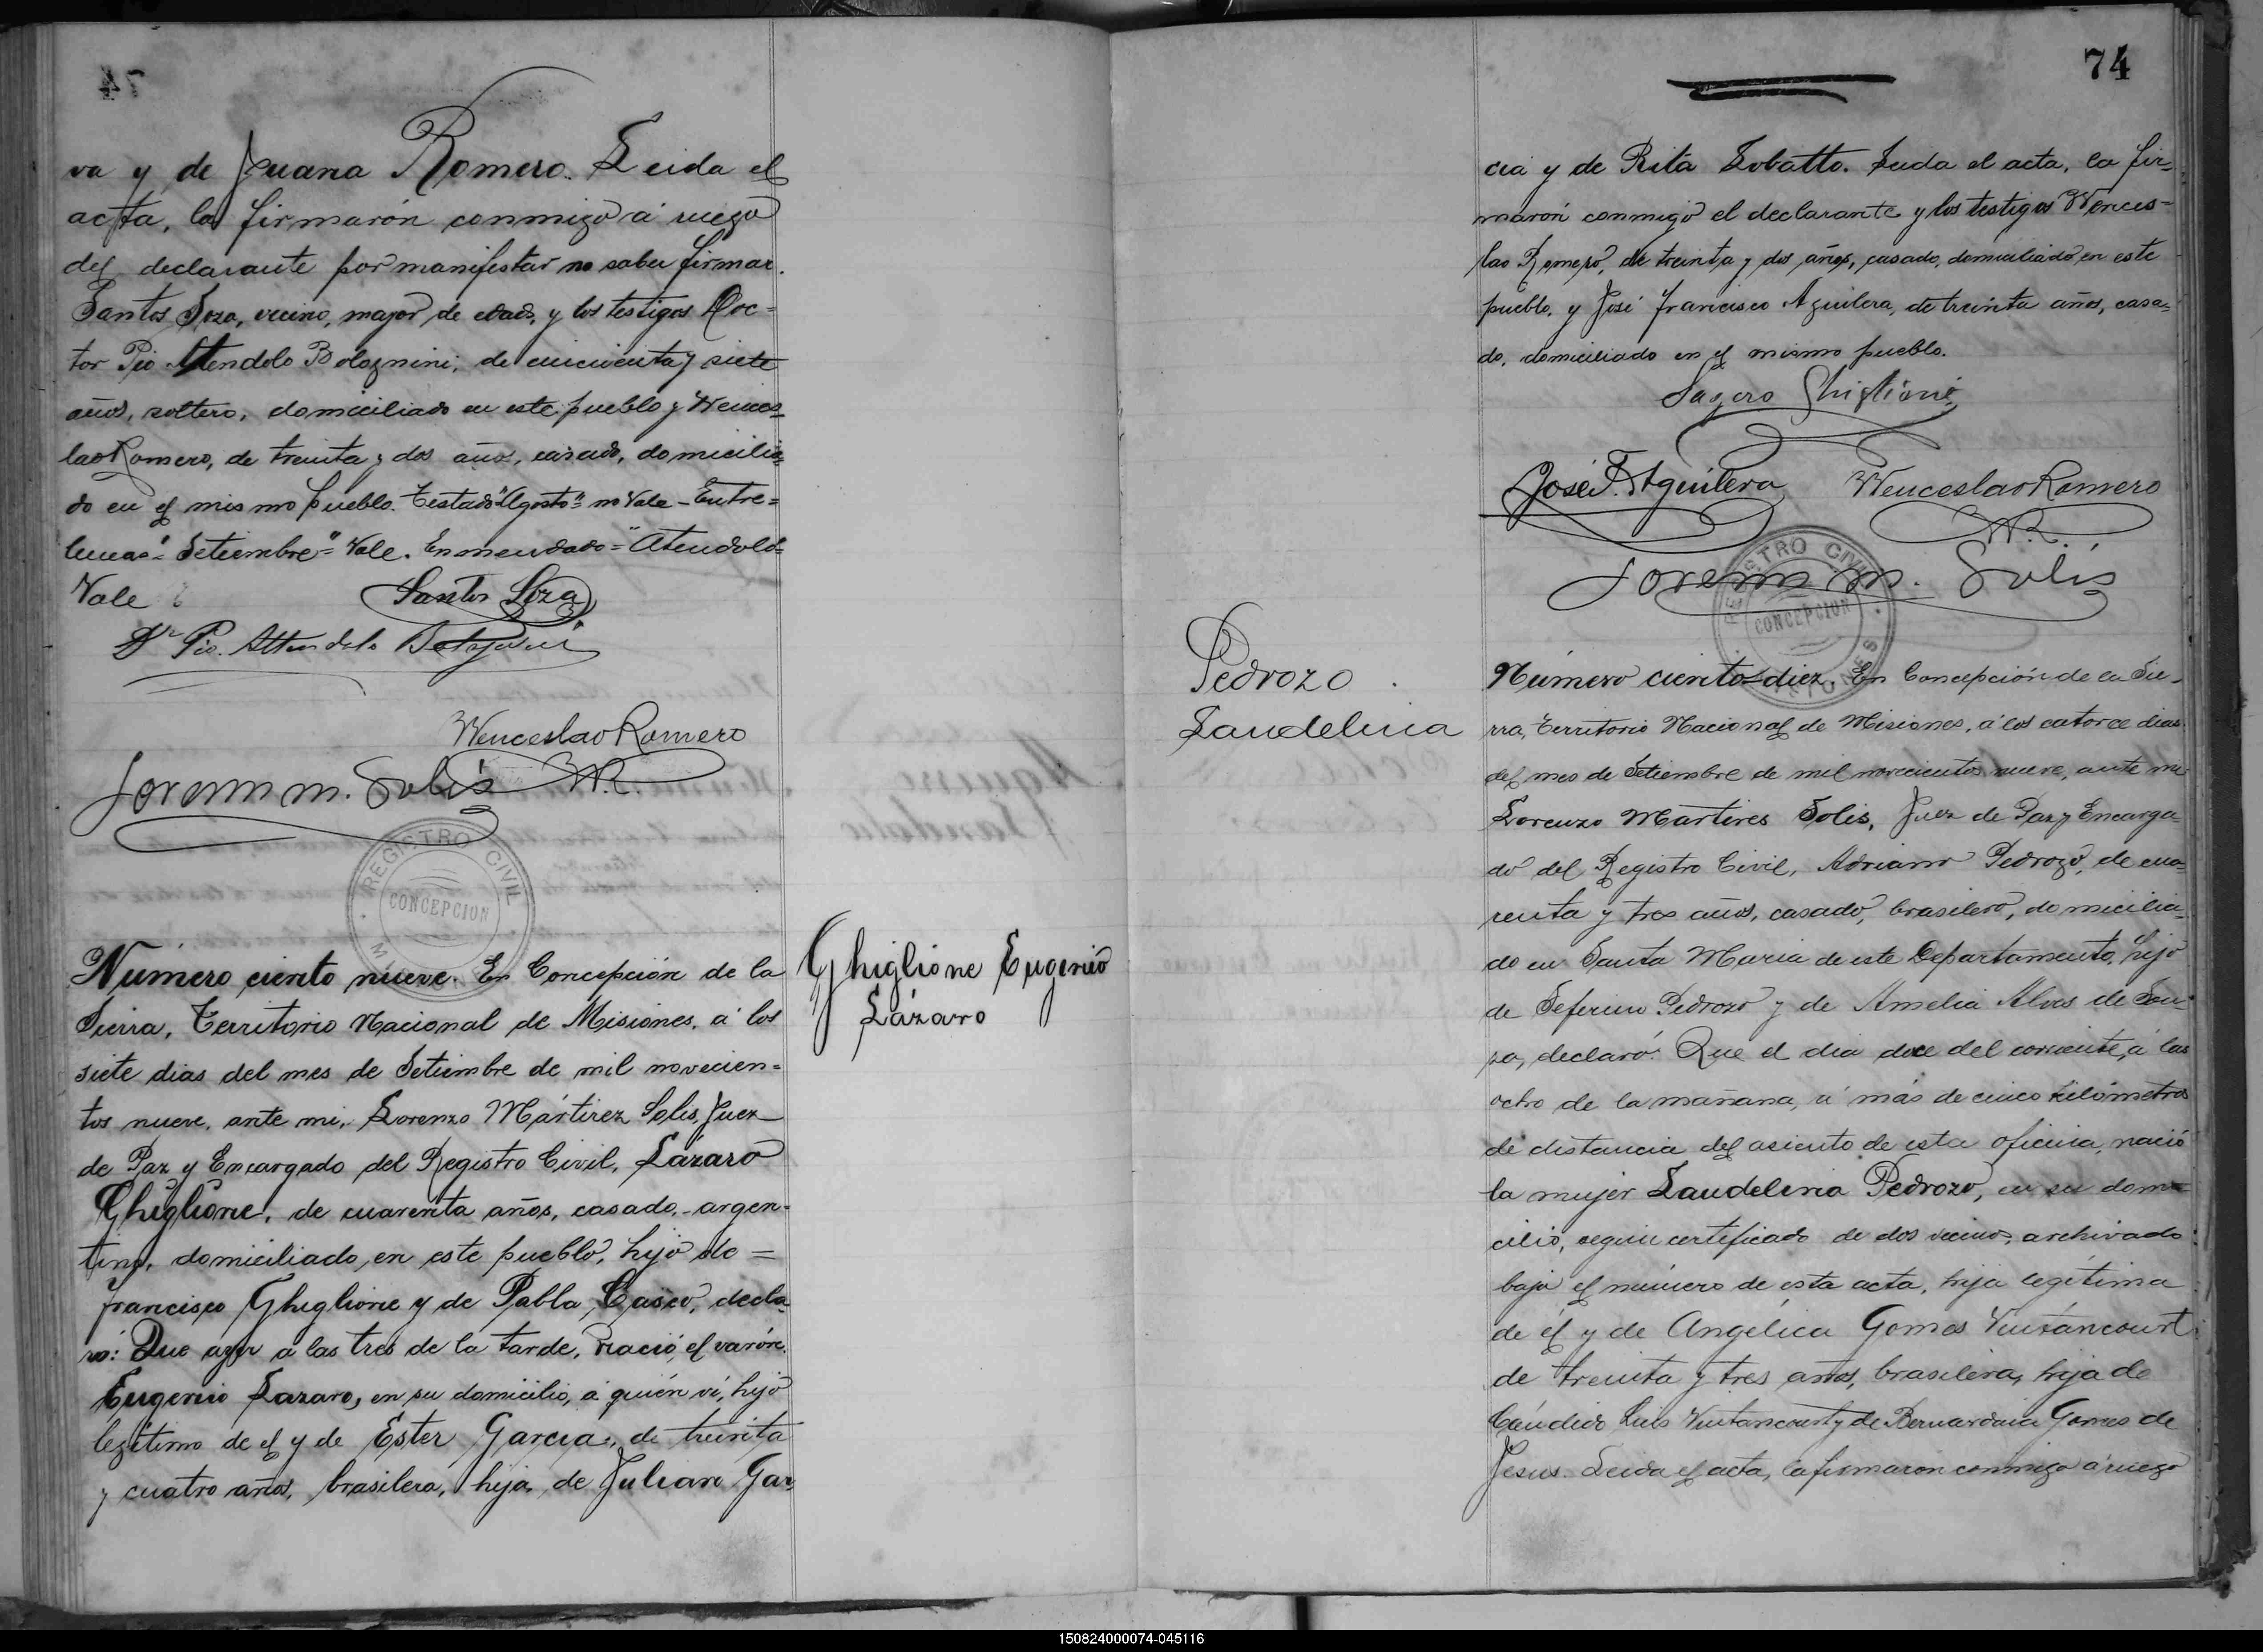 74
va y de Juana Romero. Leida el
acta, la firmarón conmigo á ruego
del declarante por manifestar no saber firmar.
Santos Soza, vecino, mayor de edad, y los testigos Doc=
tor Pio Atendolo Bolognini, de cincuenta y siete
años, soltero, domiciliado en este pueblo y Wences=
lao Romero, de treinta y dos años, casado, domicilia=
do en el mismo pueblo. Testado "Agosto" no Vale - Entre=
lineas "Setiembre" Vale. Enmendado = "Atendolo"
Vale
Santos Soza
Dr Pio Attendolo Bolognini
Wenceslao Romero
W.R.
Lorenzo M. Solis
REGISTRO CIVIL
CONCEPCION
Número ciento nueve. En Concepción de la
Sierra, Territorio Nacional de Misiones, á los
siete dias del mes de Setiembre de mil novecien=
tos nueve, ante mi, Lorenzo Mártirez Solis, Juez
de Paz y Encargado del Registro Civil, Lázaro
Ghiglione, de cuarenta años, casado, argen=
tino, domiciliado, en este pueblo, hijo de =
Francisco Ghiglione y de Pabla Casco, decla
ró: Que ayer á las tres de la tarde, nació, el varón
Eugenio Lazaro, en su domicilio, á quién ví, hijo
legítimo de el y de Ester Garcia, de treinta
y cuatro años, brasilera, hija de Julian Gar
Ghiglione Eugenio
Lázaro
74
cia y de Rita Lobatto. Leida el acta, la fir=
marón conmigo el declarante y los testigos Wences=
lao Romero, de treinta y dos años, casado, domiciliado en este
pueblo, y José Francisco Aguilera, de treinta años, casa=
do, domiciliado en el mismo pueblo.
Lazaro Ghiglione
José F. Aguilera
Wenceslao Romero
W.R.
Lorenzo M. Solis
REGISTRO CIVIL
CONCEPCION
MISIONES
Pedrozo
Laudelina
Número ciento diez. En Concepción de la Sie=
rra, Territorio Nacional de Misiones, á los catorce dias
del mes de Setiembre de mil novecientos nueve, ante mi
Lorenzo Martires Solis, Juez de Paz y Encarga=
do del Registro Civil, Adriano Pedrozo, de cua=
renta y tres años, casado, brasilero, domicilia=
do en Santa Maria de este Departamento, hijo
de Seferino Pedrozo y de Amelia Alves de Sou=
za, declaró: Que el dia doce del corriente, á las
ocho de la mañana, á más de cinco kilómetros
de distancia del asiento de esta oficina, nació
la mujer Laudelina Pedrozo, en su domi=
cilio, según certificado de dos vecinos, archivado
bajo el número de esta acta, hija legítima
de él y de Angélica Gomes Vintáncourt
de treinta y tres años, brasilera, hija de
Cándido Luis Vintancourt y de Bernardina Gomes de
Jesus. Leida el acta, la firmaron conmigo á ruego
150824000074-045116